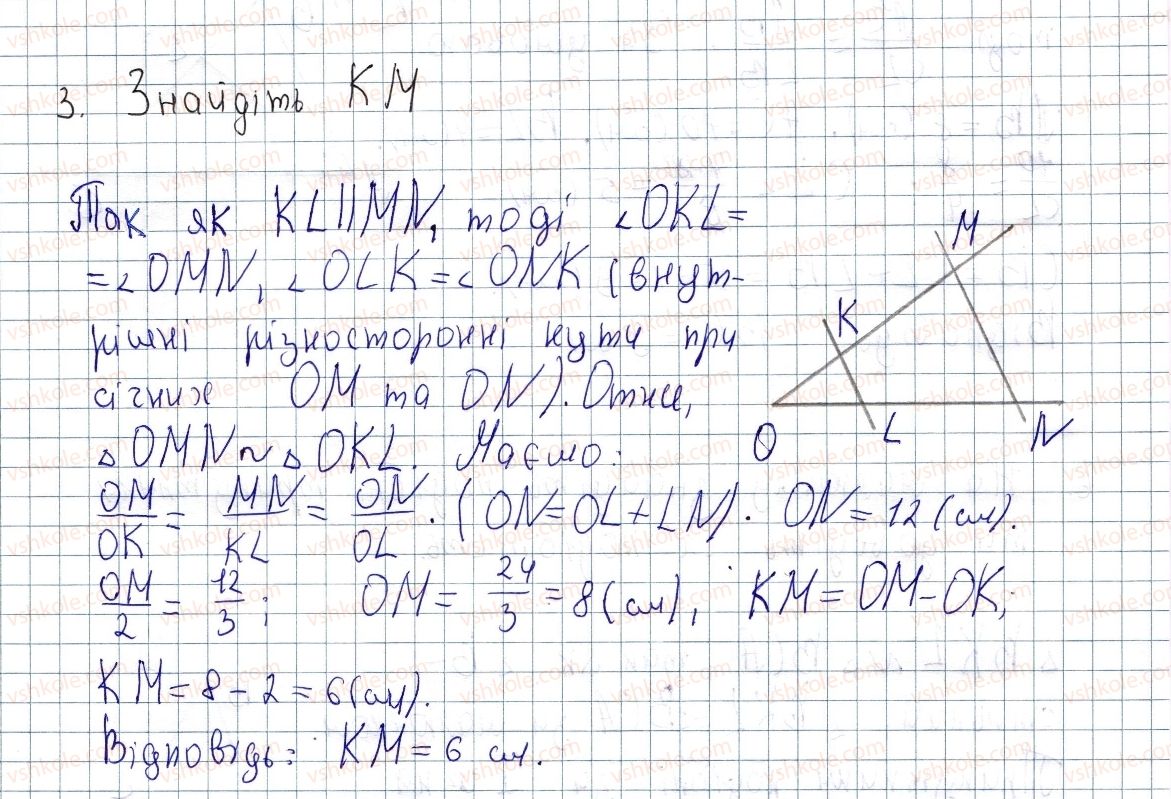 3. Знайдіть KM
Так як KL||MN, тоді ∠OKL=
=∠OMN, ∠OLK=∠ONK (внут-
рішні різносторонні кути при
січних OM та ON). Отже,
△OMN~△OKL. Маємо:
OM/OK = MN/KL = ON/OL. (ON=OL+LN). ON=12(см).
OM/2 = 12/3; OM= 24/3 =8(см), KM=OM-OK;
KM=8-2=6(см).
Відповідь: KM=6 см.
M
K
O
L
N
vshkole.com